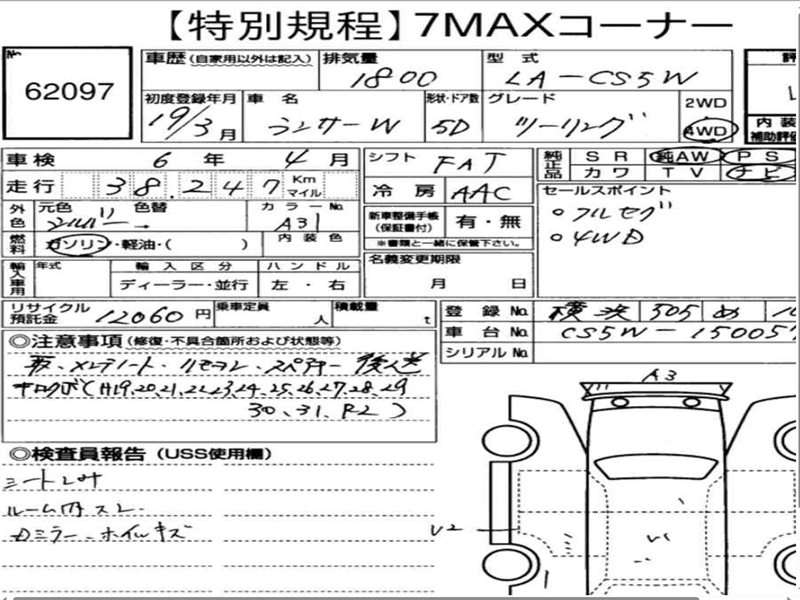 【特別規程】7MAXコーナー
No. 62097
車歴(自家用以外は記入) 排気量 1800 型式 LA-CS5W
初度登録年月 19/3月 車名 ランサーW 形状・ドア数 5D グレード ツーリング 2WD 4WD
内装 補助評価
車検 6年 4月 シフト FAT 純正品 SR 純AW PS カワ TV ナビ
走行 38,247 Km マイル 冷房 AAC セールスポイント
外色 元色 シルバー 色替 カラーNo. A31 新車整備手帳(保証書付) 有・無 ※書類と一緒に保管下さい。 ○フルセグ
燃料 ガソリン・軽油・( ) 内装色 ○4WD
輸入車用 年式 輸入区分 ディーラー・並行 ハンドル 左・右 名義変更期限 月 日
リサイクル預託金 12060円 乗車定員 人 積載量 t
登録No. 横浜 305 め 10
車台No. CS5W-15005
シリアルNo.
◎注意事項(修復・不具合箇所および状態等)
取、メンテノート、リモコン、スペアキー 後送
キロクボ(H19,20,21,22,23,24,25,26,27,28,29
30、31、R2)
◎検査員報告(USS使用欄)
シート
ルーム内スレ
ミラー、ホイルキズ
A3
U2